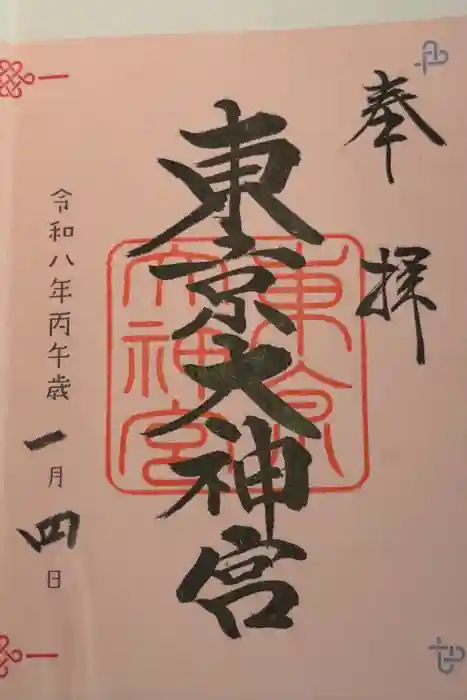 奉拝
東京大神宮
東京大神宮
令和八年丙午歳一月四日